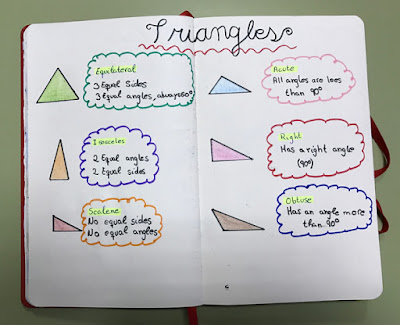 Triangles
Equilateral
3 Equal Sides
3 Equal angles, always 60°
Isosceles
2 Equal angles
2 Equal sides
Scalene
No equal sides
No equal angles
Acute
All angles are less
than 90°
Right
Has a right angle
(90°)
Obtuse
Has an angle more
than 90°